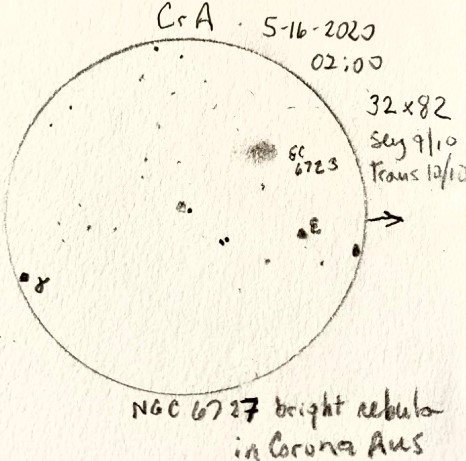 CrA . 5-16-2020
02:00
32x82
sey 9/10
trans 10/10
GC
6723
ε
γ
NGC 6727 bright nebula
in Corona Aus